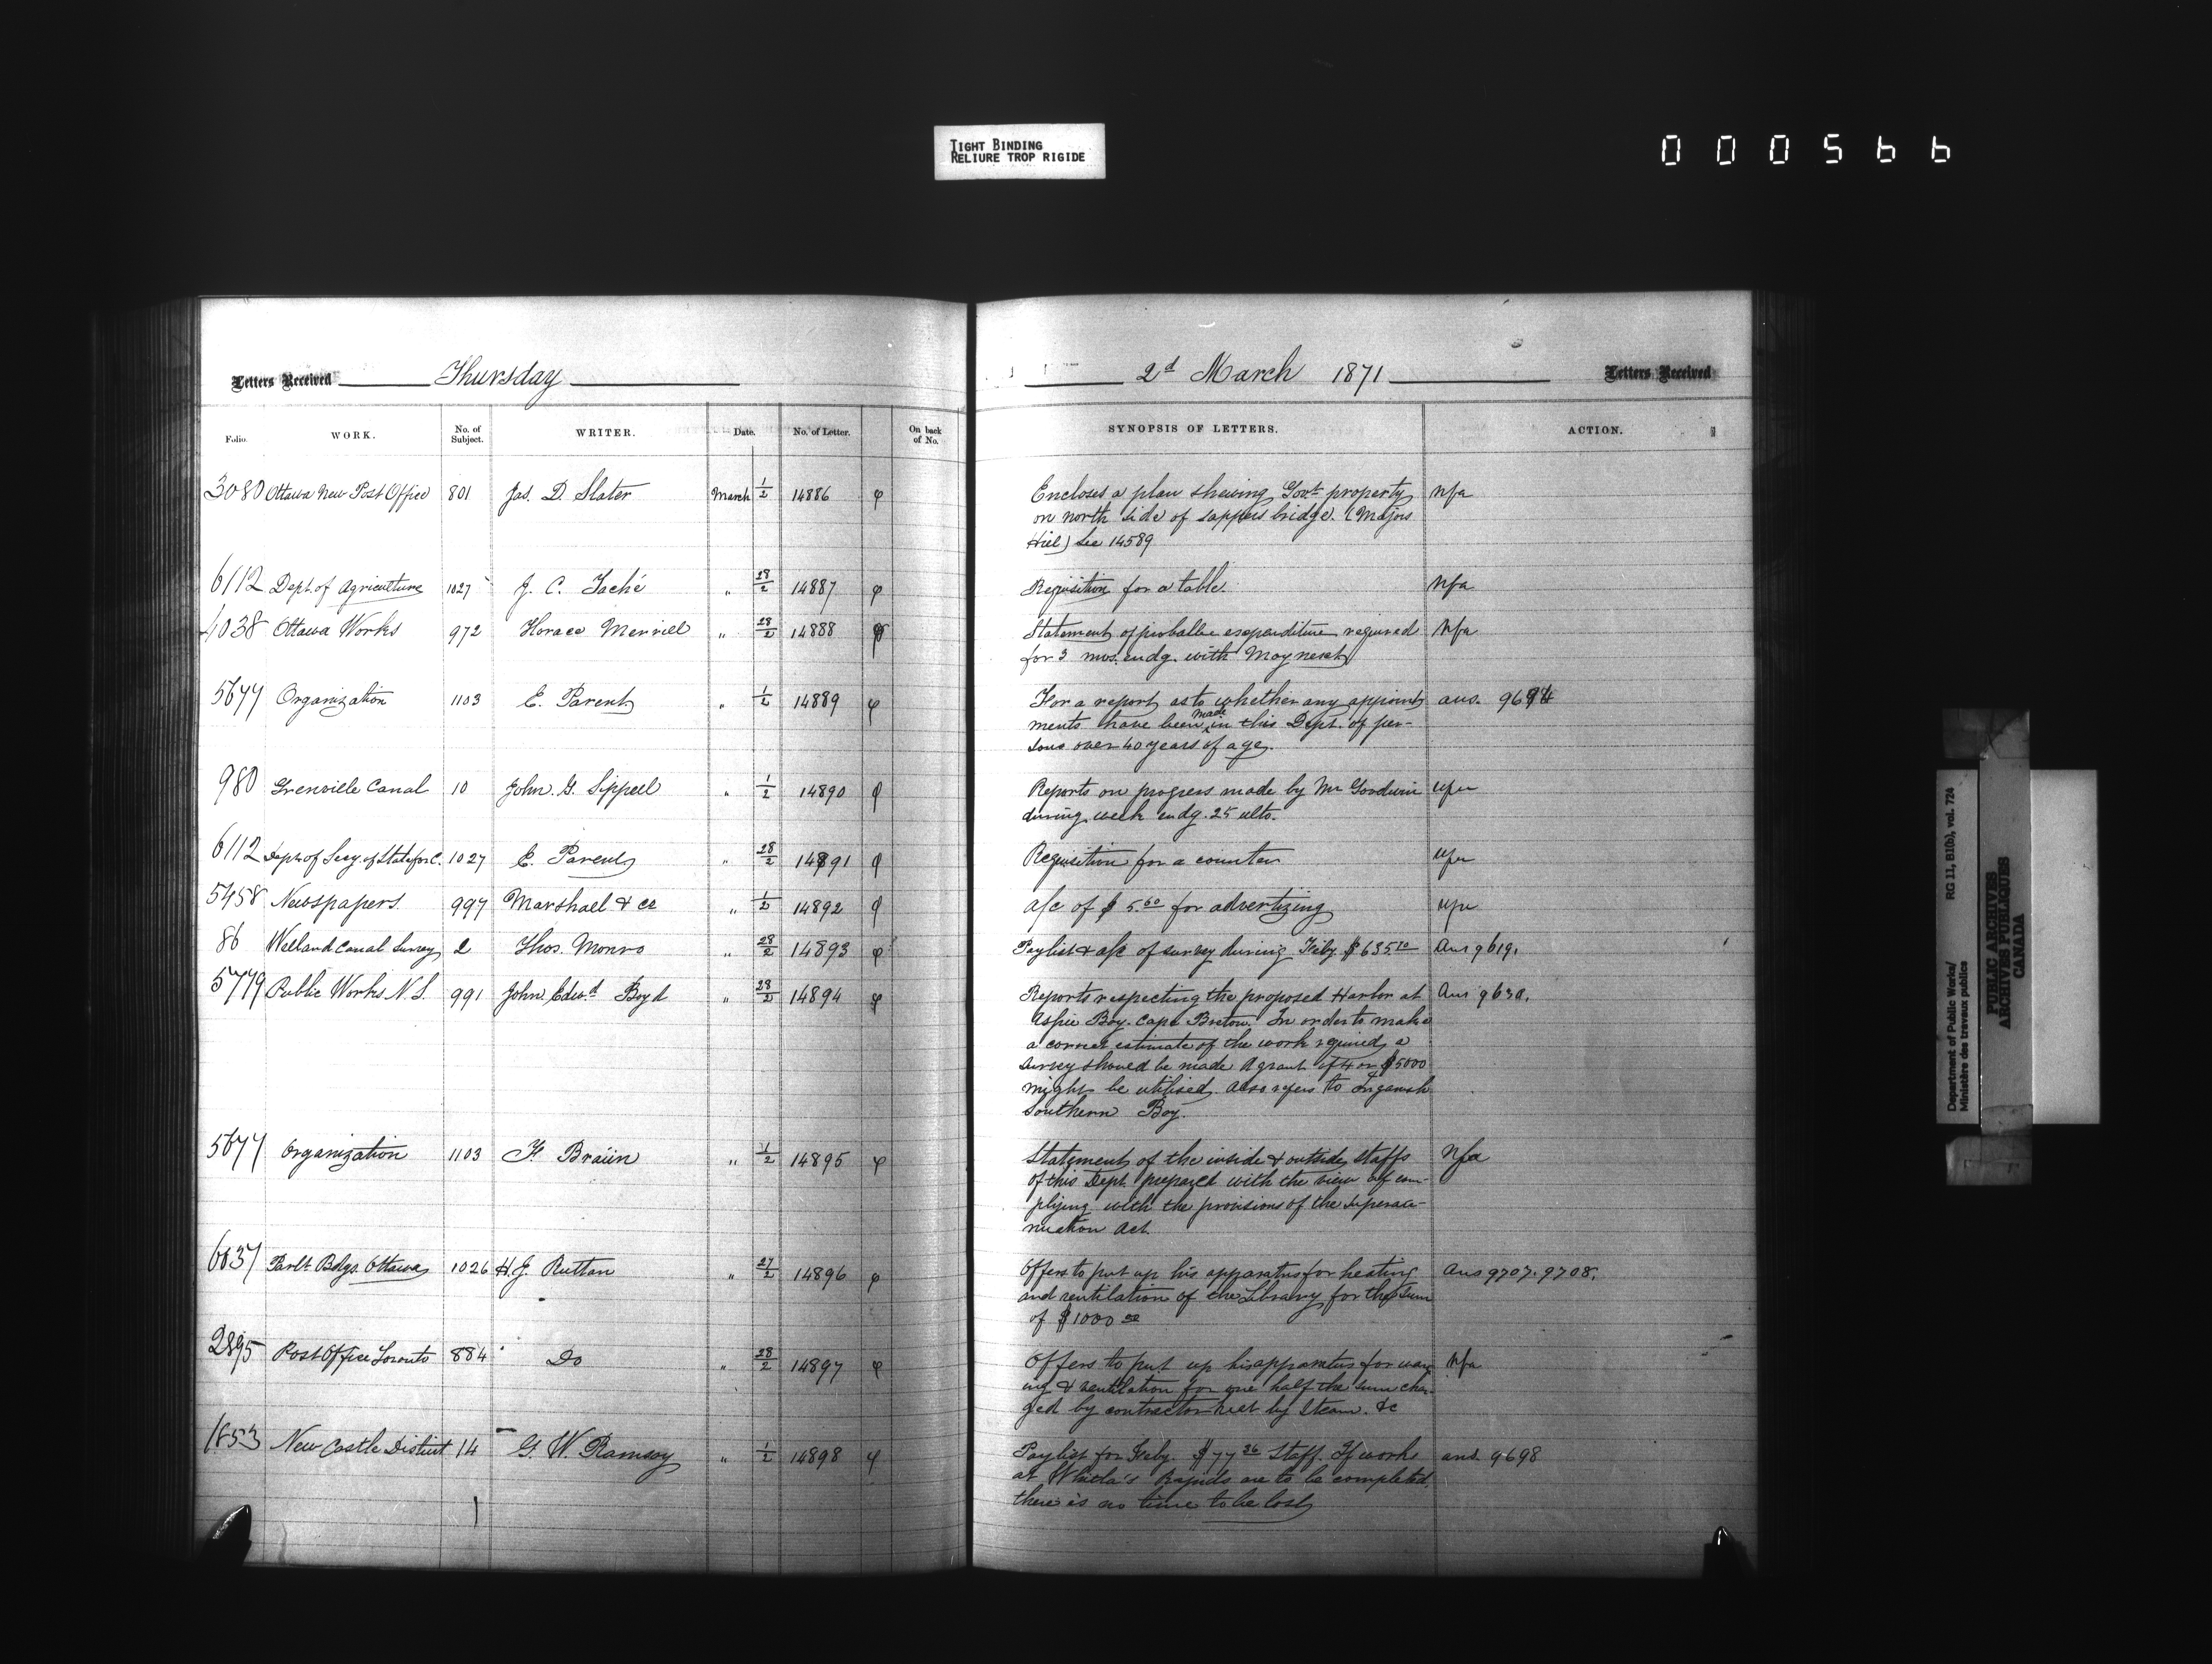 TIGHT BINDING
RELIURE TROP RIGIDE
000566
Letters Received Thursday
2d March 1871 Letters Received
Folio. WORK. No. of Subject. WRITER. Date. No. of Letter. On back of No.
SYNOPSIS OF LETTERS. ACTION.
3080 Ottawa New Post Office 801 Jas. D. Slater March 1/2 14886 φ
Encloses a plan shewing Govt. property nfa
on north side of sappers bridge. (Majors
Hill) See 14589
6112 Dept. of Agriculture 1027 J. C. Taché " 28/2 14887 φ
Requisition for a table. nfa
4038 Ottawa Works 972 Horace Merrill " 28/2 14888 φ
Statement of probable expenditure required nfa
for 3 mos. endg. with May next
5677 Organization 1103 E. Parent " 1/2 14889 φ
For a report as to whether any appoint ans.
ments have been made in this Dept. of per-
sons over 40 years of age.
980 Grenville Canal 10 John. G. Sippell " 1/2 14890 φ
Reports on progress made by Mr Goodwin nfa
during week endg. 25 ulto.
6112 Dept. of Secy. of State for C. 1027 E. Parent " 28/2 14891 φ
Requisition for a counter nfa
5458 Newspapers 997 Marshall & Co " 1/2 14892 φ
a/c of $5.60 for advertizing nfa
86 Welland Canal Survey 2 Thos. Monro " 28/2 14893 φ
Paylist & a/c of survey during Feby. $635.10 Ans 9619.
5779 Public Works N.S. 991 John Edwd Boyd " 28/2 14894 φ
Reports respecting the proposed Harbor at Ans 9630.
Aspie Bay. Cape Breton. In order to make
a correct estimate of the work required, a
survey should be made A grant of 4 or $5000
might be utilised. Also refers to Inganish
Southern Bay.
5677 Organization 1103 F. Braün " 1/2 14895 φ
Statement of the inside & outside staffs nfa
of this Dept. prepared with the view of com-
plying with the provisions of the superan-
nuation Act.
6037 Parlt. Bdgs. Ottawa 1026 H.J. Ruttan " 27/2 14896 φ
Offers to put up his apparatus for heating Ans 9707. 9708.
and ventilation of the Library for the sum
of $1000 00
2895 Post Office Toronto 884 Do " 28/2 14897 φ
Offers to put up his apparatus for warm nfa
ing & ventilation for one half the sum char-
ged by contractor heat by Steam. &c
1853 New Castle District 14 G. W. Ramsay " 1/2 14898 φ
Paylist for Feby. $77 36 Staff. If works ans. 9698
at Whitla's Rapids are to be completed,
there is no time to be lost
Department of Public Works/ RG 11, B1(b), vol. 724
Ministère des travaux publics
PUBLIC ARCHIVES
ARCHIVES PUBLIQUES
CANADA